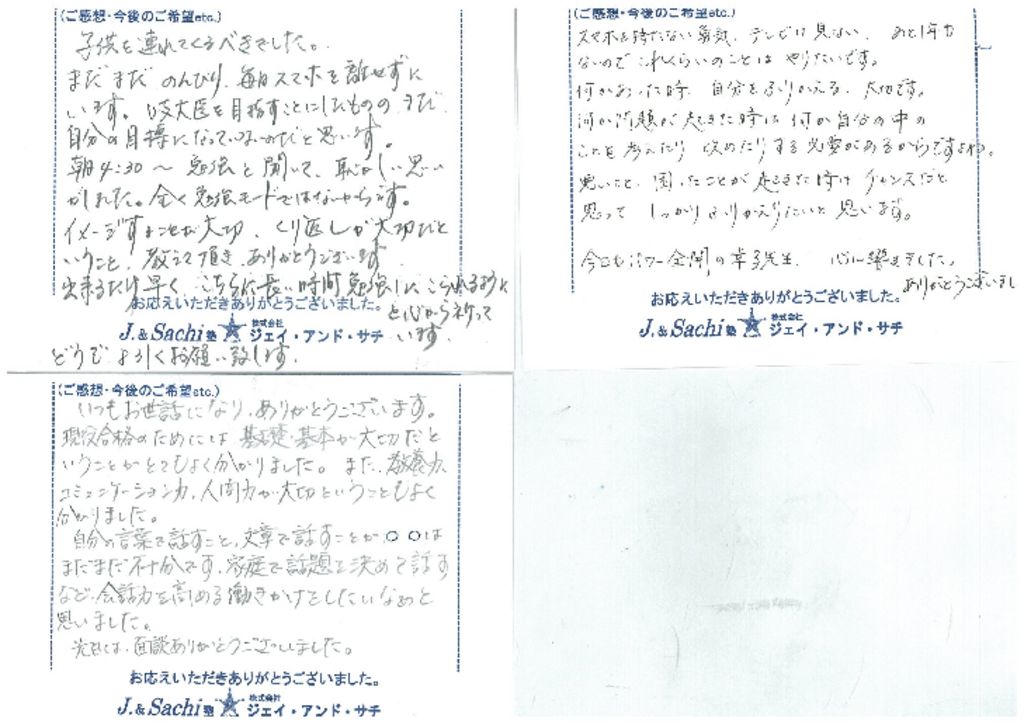 (ご感想・今後のご希望etc.)
子供を連れてくるべきでした。
まだまだ のんびり、毎日スマホを離せずに
います。岐大医を目指すことにしたものの まだ
自分の目標になっていないのだと思います。
朝4:30〜 勉強と聞いて、恥かしい思い
がしました。全く勉強モードではないからです。
イメージすることが大切、くり返しが大切だと
いうこと、教えて頂き、ありがとうございます
出来るだけ早く、こちらに長い時間勉強しにこられるように
と心から祈って
います。
どうぞよろしくお願い致します。
お応えいただきありがとうございました。
J.&Sachi塾 株式会社 ジェイ・アンド・サチ
(ご感想・今後のご希望etc.)
スマホを持たない勇気、テレビは見ない、あと1年
なので これくらいのことは やりたいです。
何かあった時、自分をふりかえる、大切です。
何か問題が起きた時は 何か自分の中の
ことを考えたり 改めたりする必要があるからですよね。
悪いこと、困ったことが起きた時は チャンスだと
思って しっかりふりかえりたいと思います。
今日もパワー全開の幸子先生、心に響きました。
ありがとうございまし
お応えいただきありがとうございました。
J.&Sachi塾 株式会社 ジェイ・アンド・サチ
(ご感想・今後のご希望etc.)
いつもお世話になり、ありがとうございます。
現役合格のためには 基礎・基本が大切だと
いうことがとてもよく分かりました。また、教養力、
コミュニケーション力、人間力が大切ということもよく
分かりました。
自分の言葉で話すこと、文章で話すことが、○○は
まだまだ不十分です。家庭で話題を決めて話す
など、会話力を高める働きかけをしたいなあと
思いました。
先日は、面談ありがとうございました。
お応えいただきありがとうございました。
J.&Sachi塾 株式会社 ジェイ・アンド・サチ